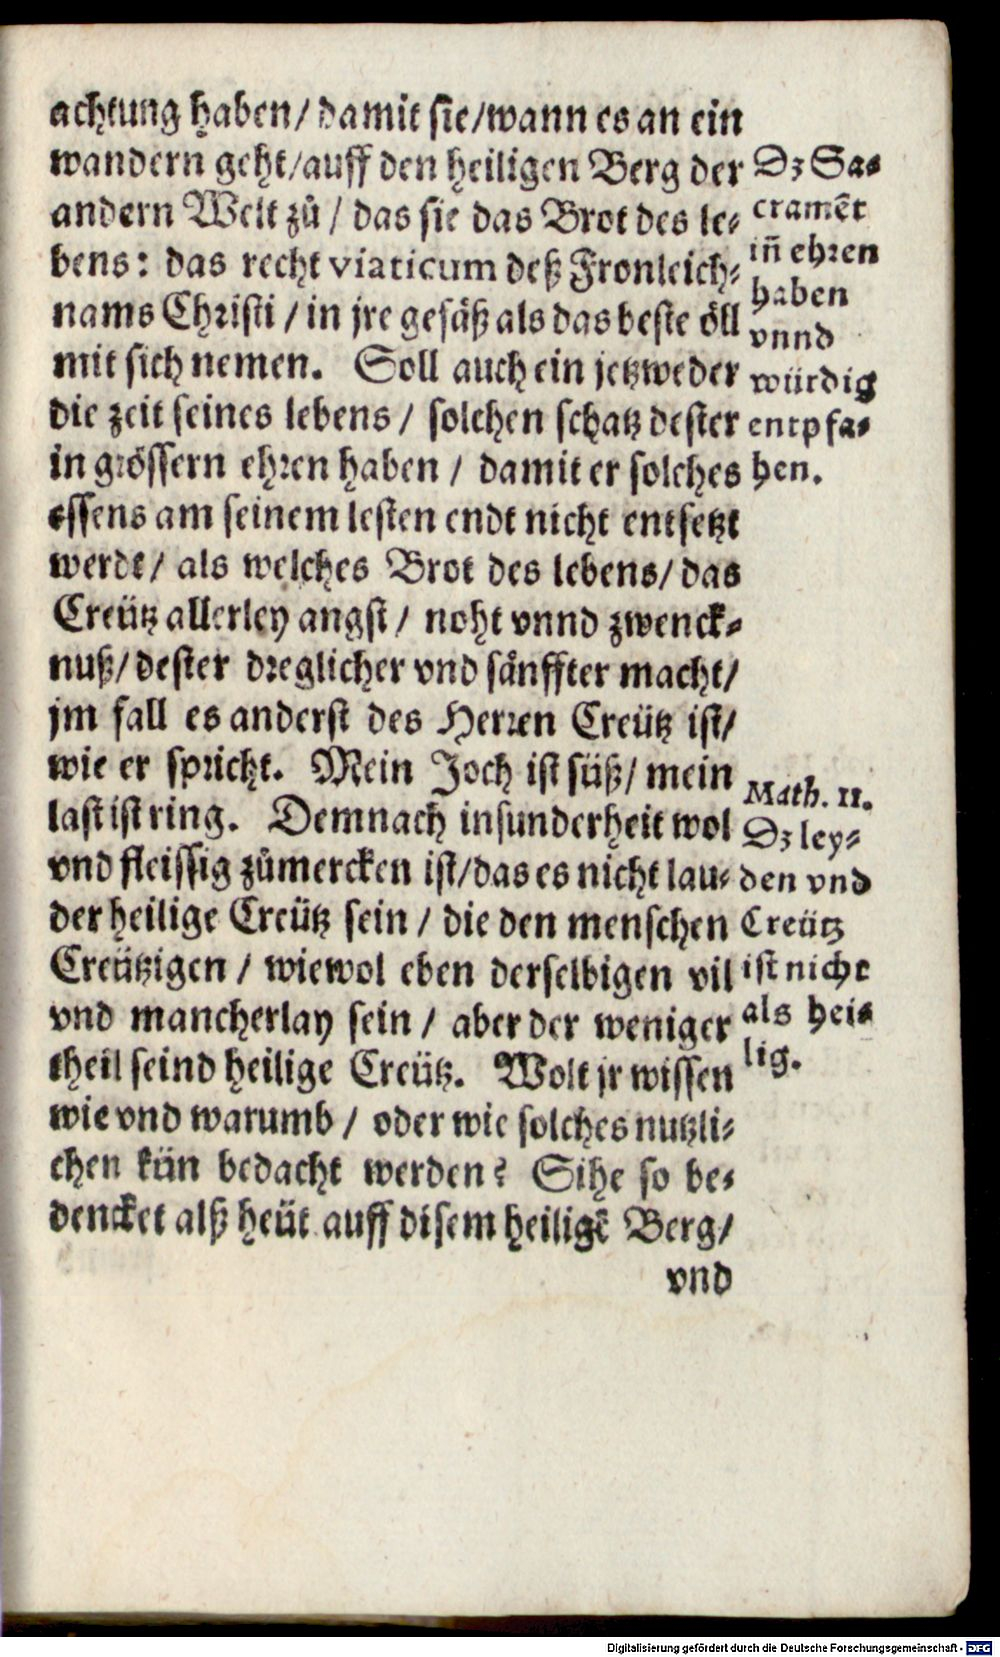 achtung haben/ damit sie/wann es an ein
wandern geht/auff den heiligen Berg der
andern Welt zů / das sie das Brot des le-
bens: das recht viaticum deß Fronleich-
nams Christi / in jre gesäß als das beste öll
mit sich nemen. Soll auch ein jetzweder
die zeit seines lebens / solchen schatz dester
in grössern ehren haben / damit er solches
essens am seinem lesten endt nicht entsetzt
werdt/ als welches Brot des lebens/ das
Creütz allerley angst / noht vnnd zwenck-
nuß/ dester dreglicher vnd sänffter macht/
jm fall es anderst des Herren Creütz ist/
wie er spricht. Mein Joch ist süß/ mein
last ist ring. Demnach insunderheit wol
vnd fleissig zůmercken ist/das es nicht lau-
der heilige Creütz sein / die den menschen
Creützigen / wiewol eben derselbigen vil
vnd mancherlay sein / aber der weniger
theil seind heilige Creütz. Wolt jr wissen
wie vnd warumb / oder wie solches nutzli-
chen kün bedacht werden? Sihe so be-
dencket alß heüt auff disem heiligē Berg/
vnd
Dz Sa-
cramēt
iñ ehren
haben
vnnd
würdig
entpfa-
hen.
Math. 11.
Dz ley-
den vnd
Creütz
ist nicht
als hei-
lig.
Digitalisierung gefördert durch die Deutsche Forschungsgemeinschaft - DFG